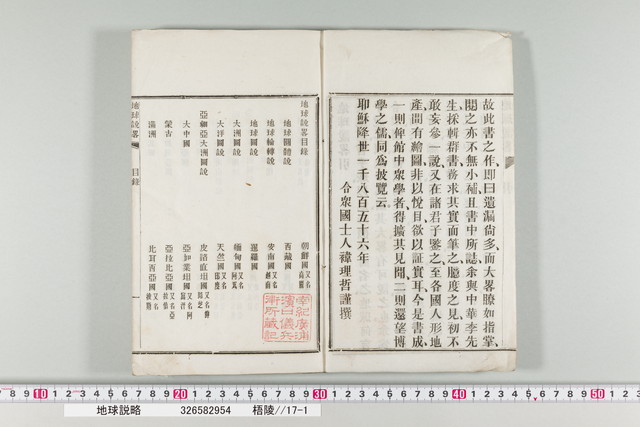 故此書之作卽曰遺漏尙多而大畧瞭如指掌
閱之亦不無小補且書中所誌余與中華李先
生採輯群書務求其實而筆之臆度之見初不
敢妄參一說又在諸君子鑒之至各國人形地
產間有繪圖非以悅目欲以証實耳今是書成
一則俾館中衆學者得擴其見聞二則還望博
學之儒同爲披覽云
耶穌降世一千八百五十六年
合衆國士人褘理哲謹撰
地球說畧目錄
地球圓體說
地球輪轉說
地球圖說
大洲圖說
大洋圖說
亞細亞大洲圖說
大中國
蒙古
滿洲
朝鮮國又名高麗
西藏國
安南國又名越南
暹羅國
緬甸國又名阿瓦
天竺國又名印度
皮路直坦國又名俾路芝
亞加業坦國又名阿富汗
亞拉比亞國又名亞拉伯
比耳西亞國又名波斯
地球說畧
目錄
地球説略 326582954 梧陵//17-1
10 20 30 40 50